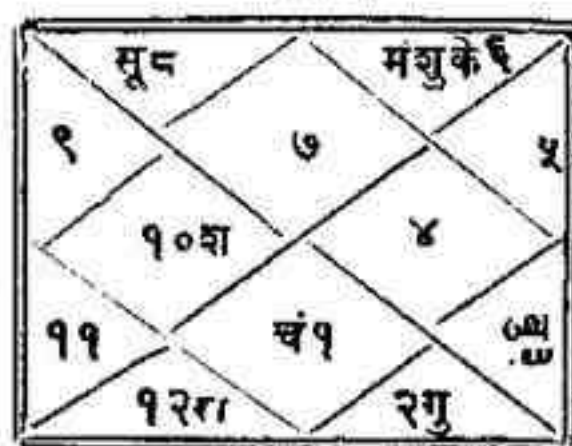 सू८ मंशुके६
९ ७ ५
१०श ४
११ चं१
१२रा २गु